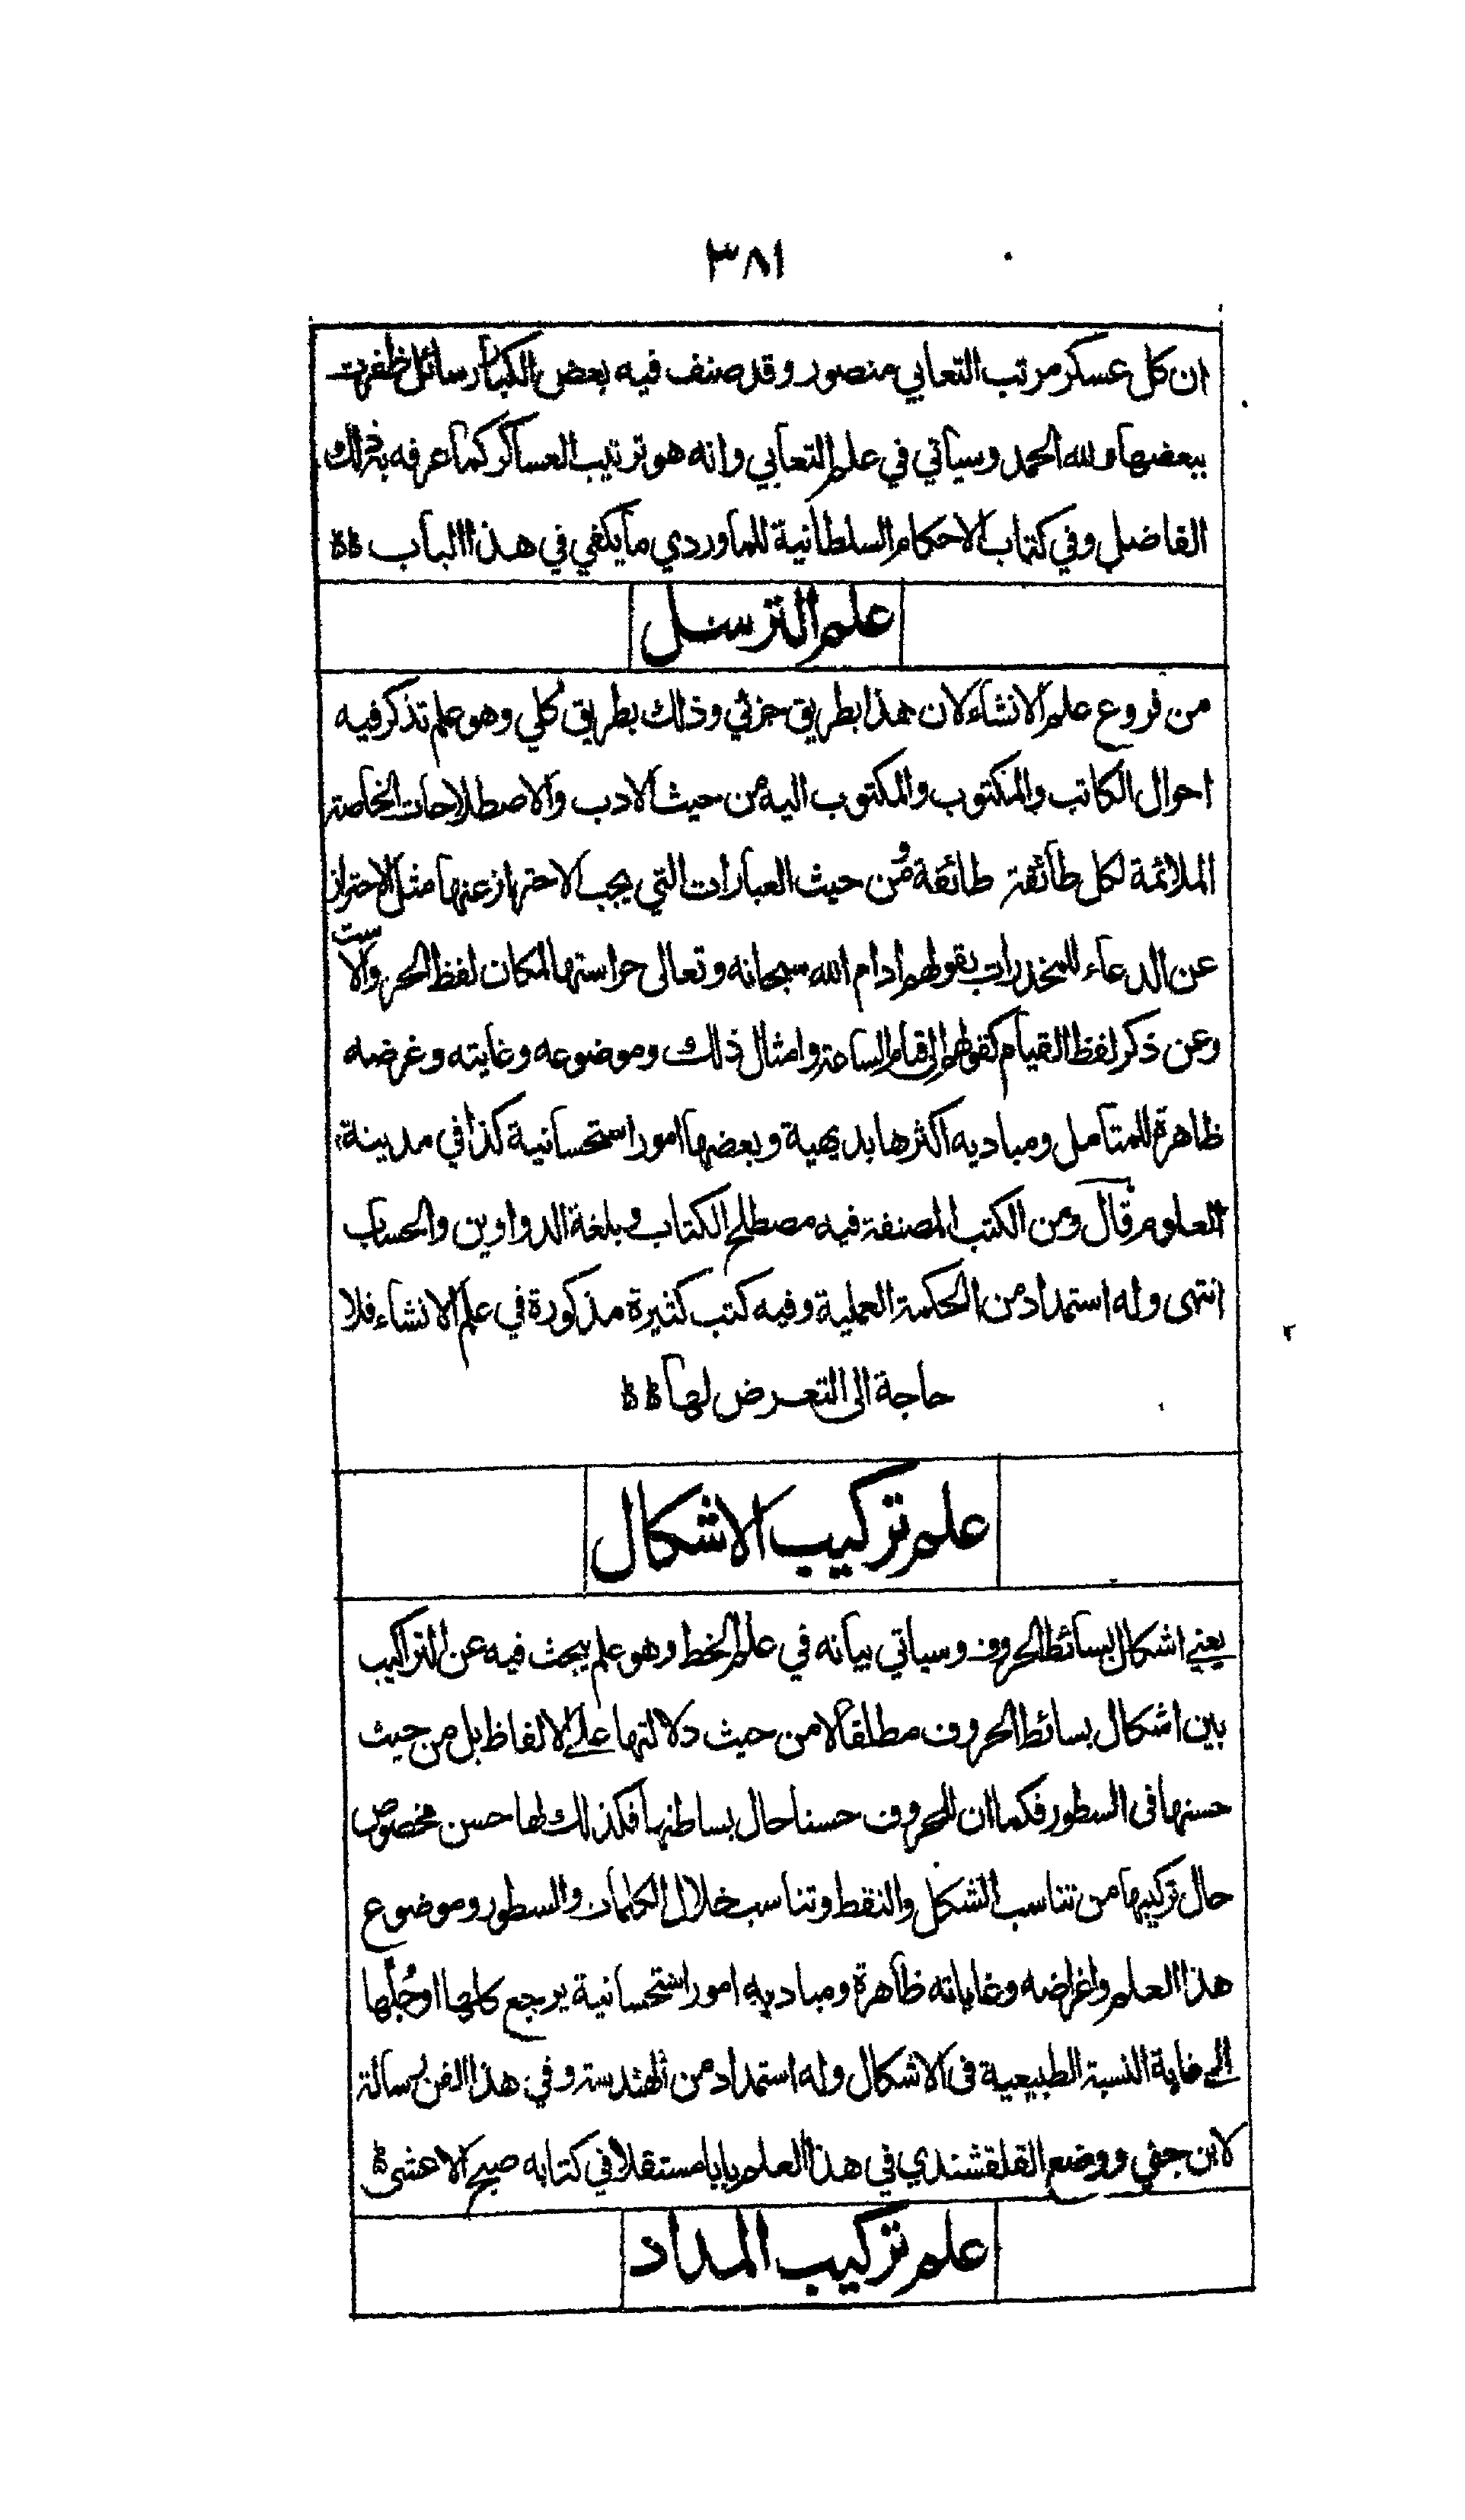 ٣٨١
ان كل عسكر مرتب التعابي منصور وقد صنف فيه بعض الكبار رسائل ظفرت
ببعضها ولله الحمد وسياتي في علم التعابي وانه هو ترتيب العساكر كما عرفه بذلك
الفاضل وفي كتاب الاحكام السلطانية للماوردي ما يكفي في هذا الباب ؞؞
علم الترسل
من فروع علم الانشاء لان هذا بطريق جزئي وذلك بطريق كلي وهو علم تذكر فيه
احوال الكاتب والمكتوب والمكتوب اليه من حيث الادب والاصطلاحات الخاصة
الملائمة لكل طائفة طائفة ومن حيث العبارات التي يجب الاحتراز عنها مثل الاحتراز
عن الدعاء للمخدرات بقولهم ادام الله سبحانه وتعالى حراستها لمكان لفظ الحر والاست
وعن ذكر لفظ القيام كقولهم الى قيام الساعة وامثال ذلك وموضوعه وغايته وغرضه
ظاهرة للمتامل ومباديه اكثرها بديهية وبعضها امور استحسانية كذا في مدينة
العلوم قال ومن الكتب المصنفة فيه مصطلح الكتاب وبلغة الدواوين والحساب
انتهى وله استمداد من الحكمة العملية وفيه كتب كثيرة مذكورة في علم الانشاء فلا
حاجة الى التعرض لها ؞؞
علم تركيب الاشكال
يعني اشكال بسائط الحروف وسياتي بيانه في علم الخط وهو علم يبحث فيه عن التراكيب
بين اشكال بسائط الحروف مطلقا لا من حيث دلالتها على الالفاظ بل من حيث
حسنها في السطور فكما ان للحروف حسنا حال بساطتها فكذلك لها حسن مخصوص
حال تركيبها من تناسب الشكل والنقط وتناسب خلال الكلمات والسطور وموضوع
هذا العلم واغراضه وغاياته ظاهرة ومباديه امور استحسانية يرجع كلها او جُلّها
الى غاية النسبة الطبيعية في الاشكال وله استمداد من الهندسة وفي هذا الفن رسالة
لابن جني ووضع القلقشندي في هذا العلم بابا مستقلا في كتابه صبح الاعشى ؞
علم تركيب المداد